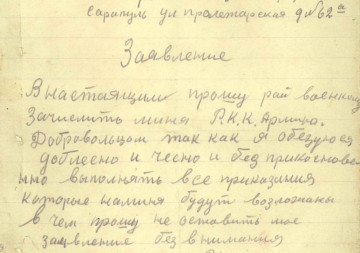 Сарапуль ул пролетарская д №62а
Заявление
Внастаящим прошу рай военком
Зачислить миня Р.К.К. Армию.
Добровольцом так как я обезуюся
доблесно и чесно и без прикословe
нно выполнять все приказиния
которые наминя будут возложаны
в чем прошу не оставить мое
заявление без внимания